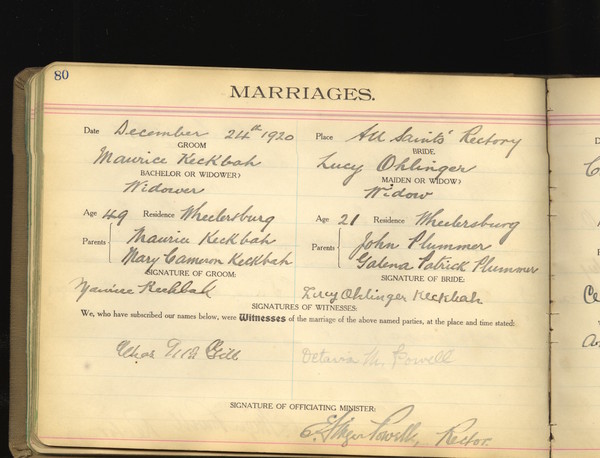 80
MARRIAGES.
Date December 24th 1920 Place All Saints' Rectory
GROOM BRIDE
Maurice Keckbah Lucy Ohlinger
BACHELOR OR WIDOWER? MAIDEN OR WIDOW?
Widower Widow
Age 49 Residence Wheelersburg Age 21 Residence Wheelersburg
Parents Maurice Keckbah Parents John Plummer
Mary Cameron Keckbah Galena Patrick Plummer
SIGNATURE OF GROOM: SIGNATURE OF BRIDE:
Maurice Keckbah Lucy Ohlinger Keckbah
SIGNATURES OF WITNESSES:
We, who have subscribed our names below, were Witnesses of the marriage of the above named parties, at the place and time stated:
Chas Gill Octavia M. Powell
SIGNATURE OF OFFICIATING MINISTER:
Powell, Rector.